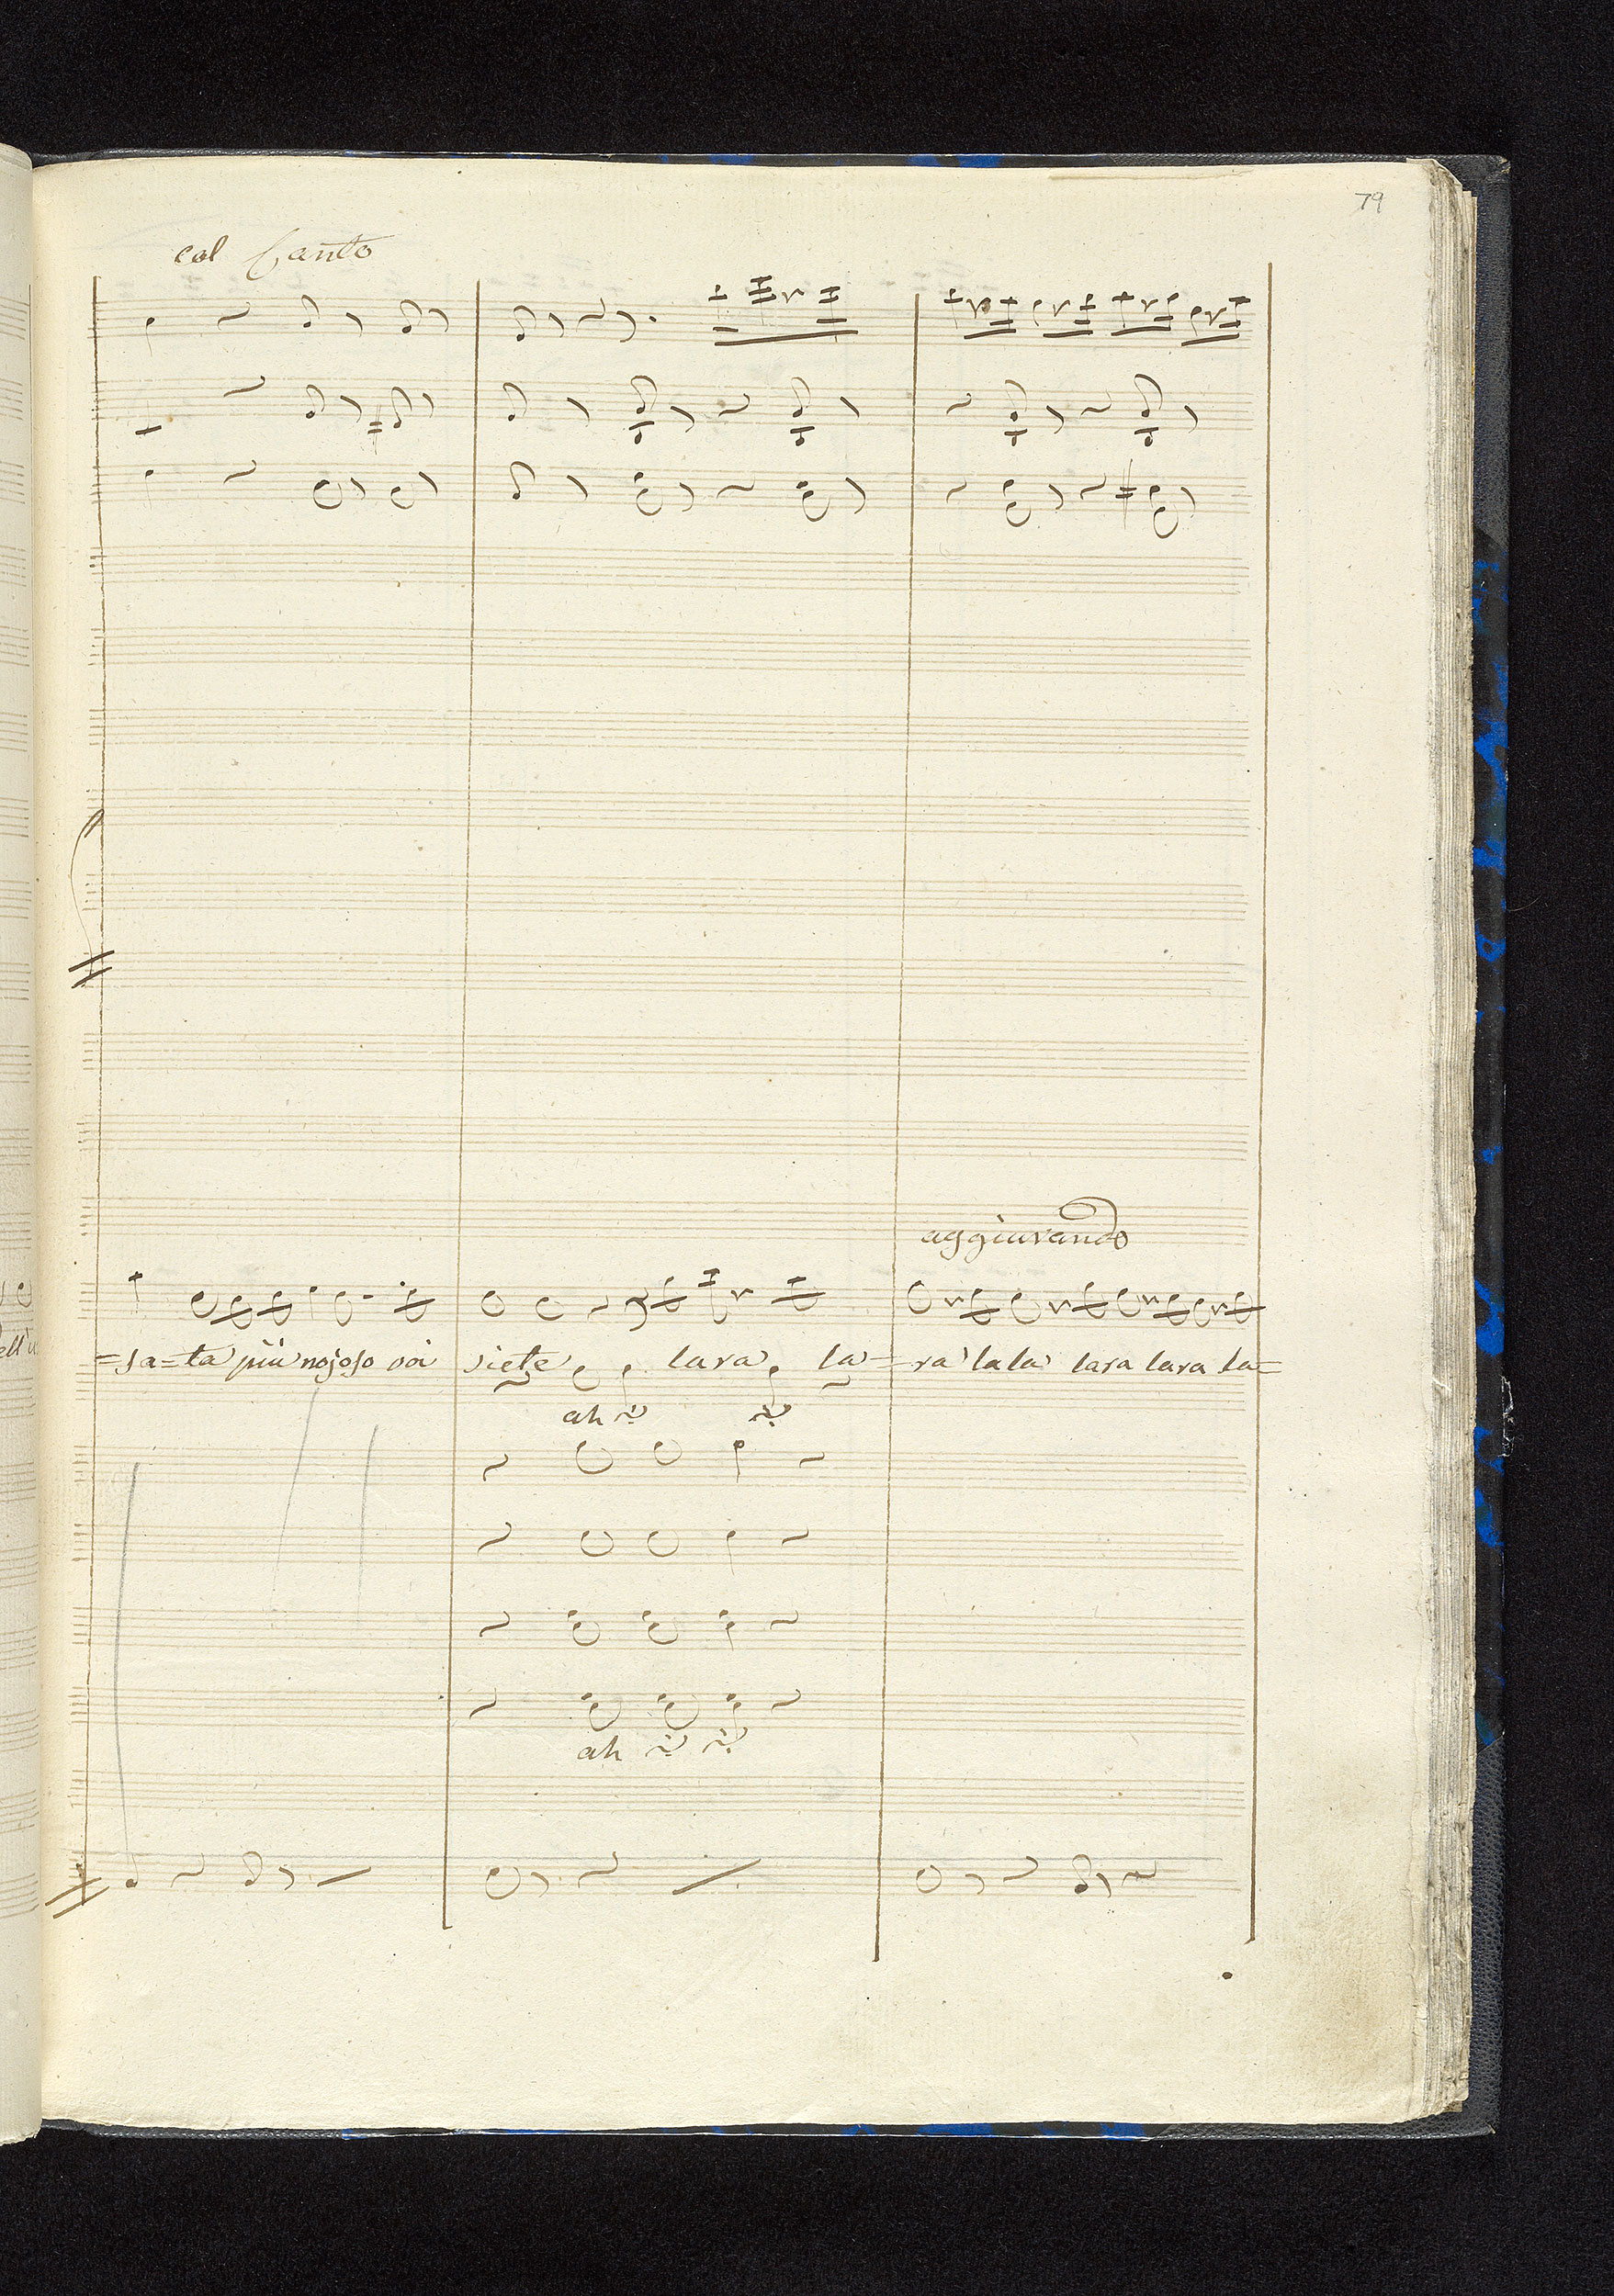 79
col Canto
aggiurando
=sa=ta più nojoso voi siete lara la=ra la la lara lara la=
ah
ah